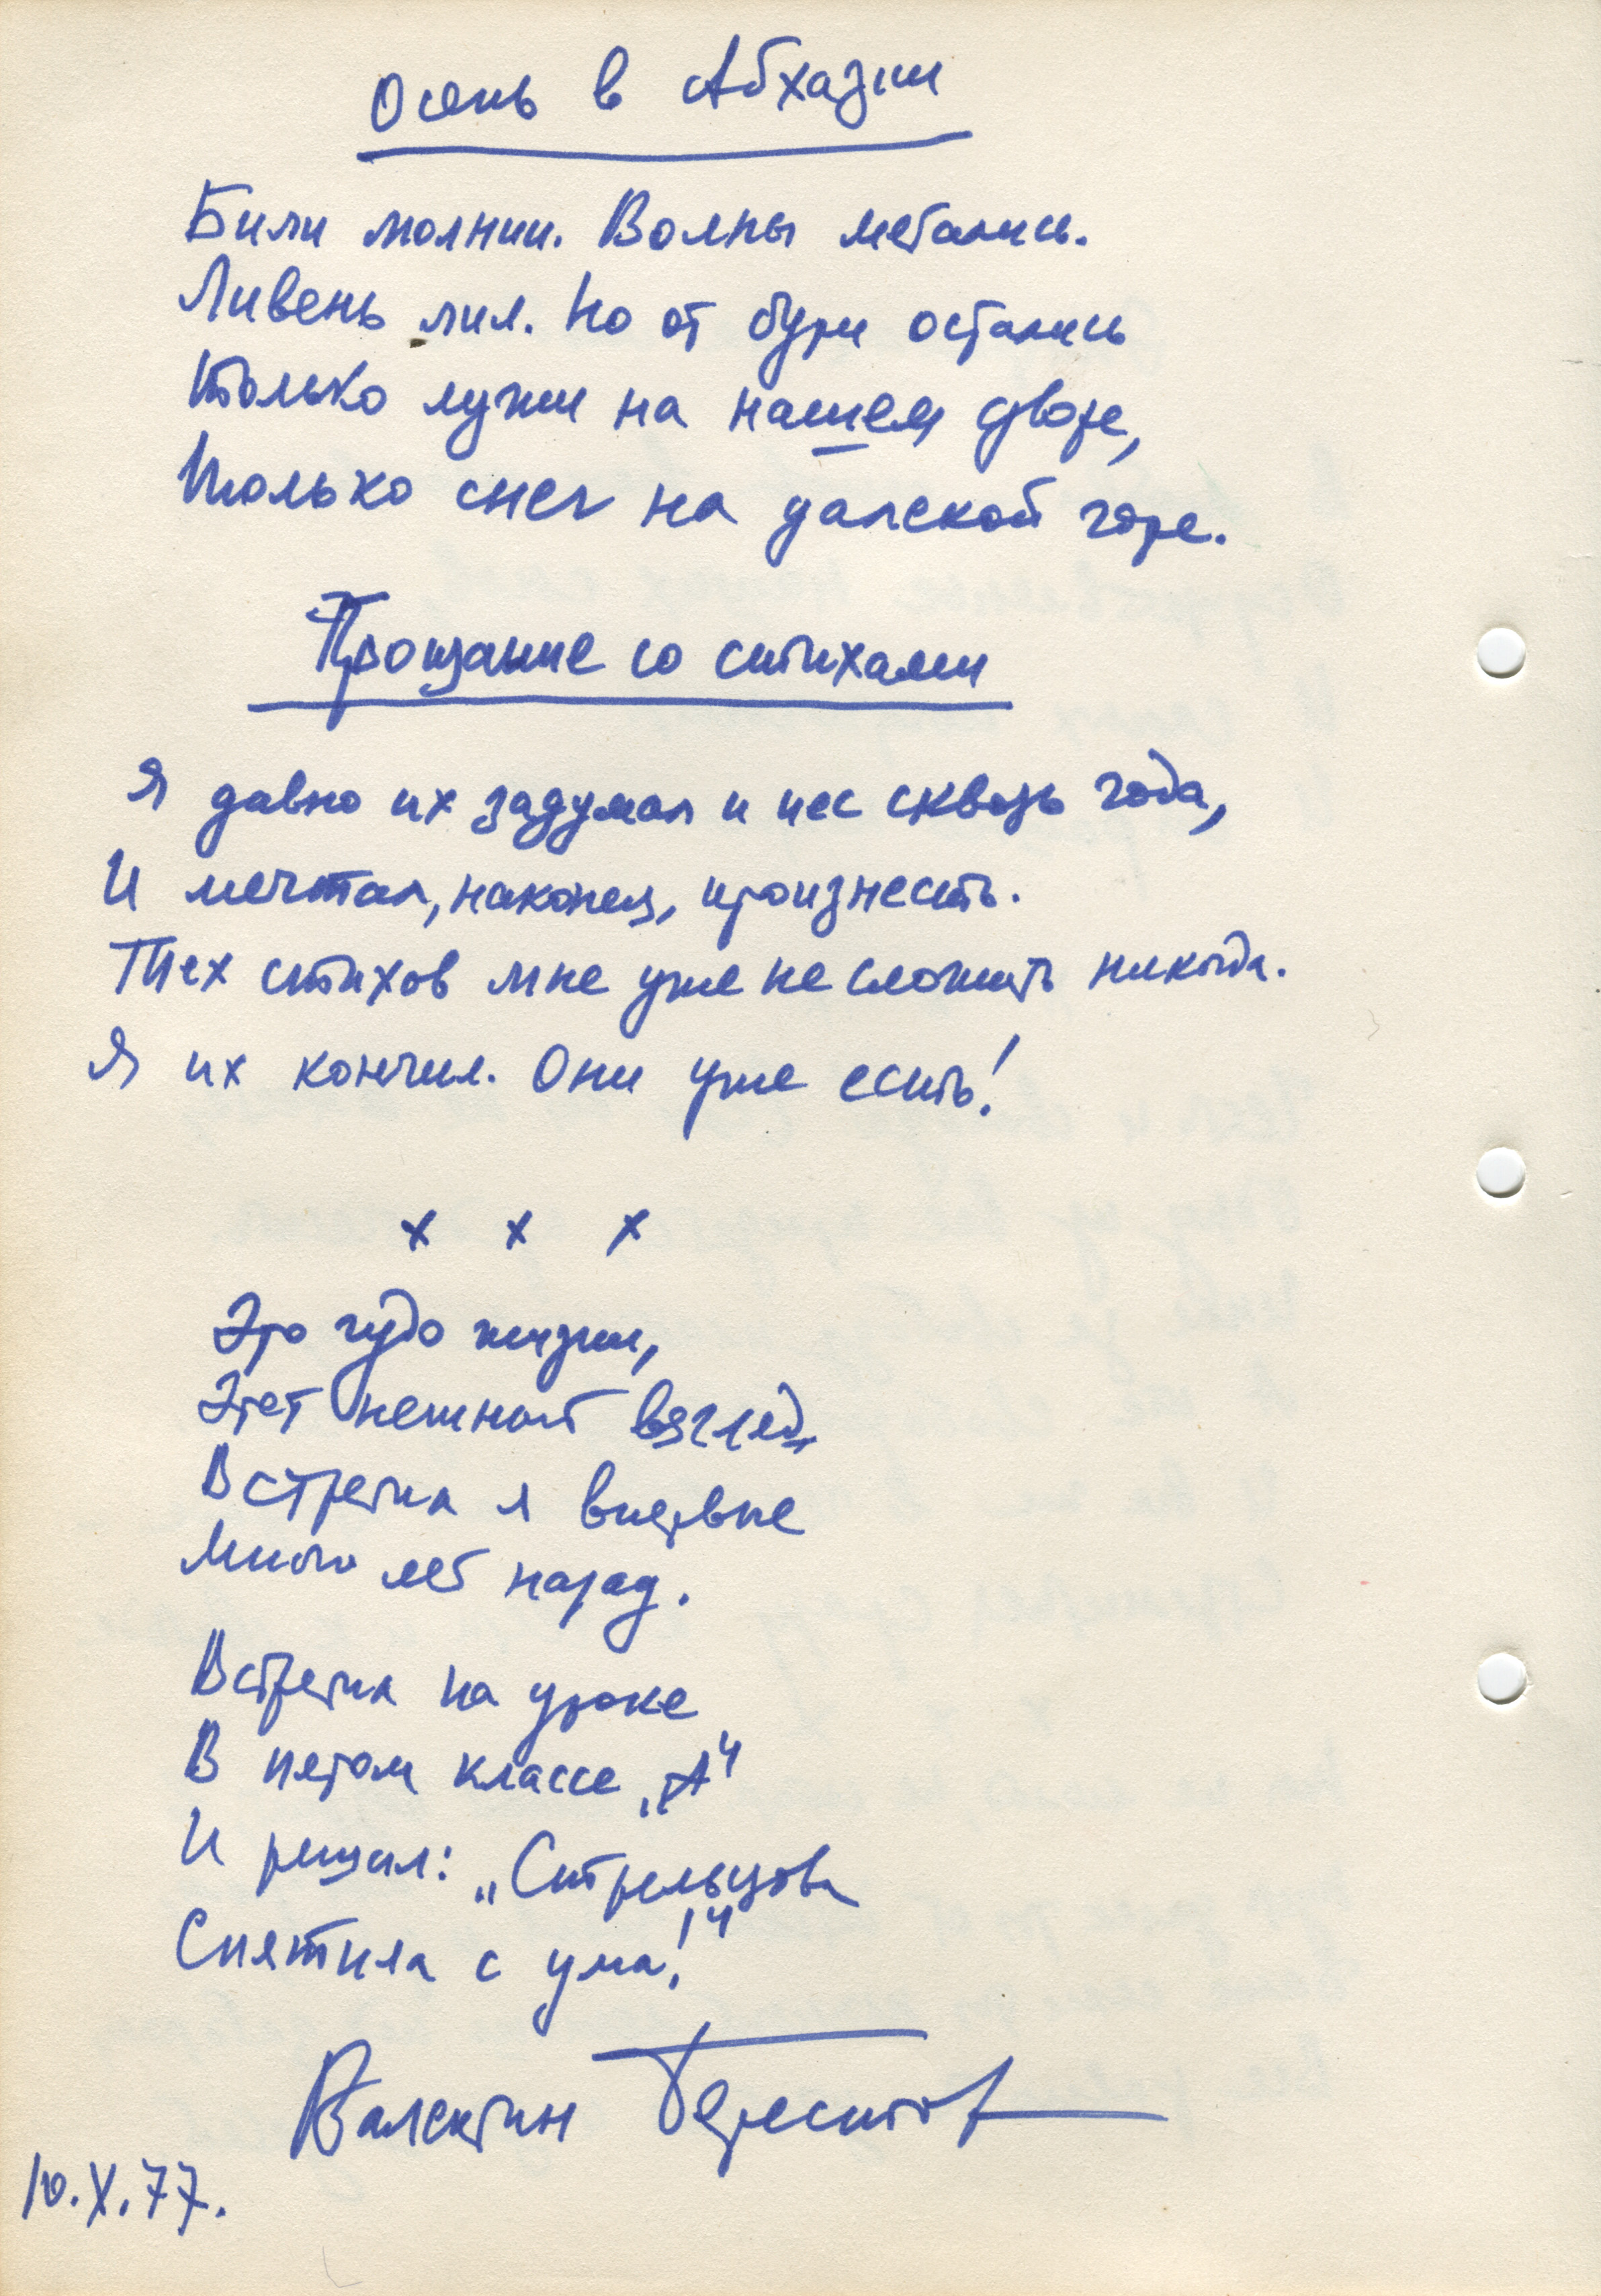 Осень в Абхазии
Били молнии. Волны метались.
Ливень лил. Но от бури остались
Только лужи на нашем дворе,
Только снег на далекой горе.
Прощание со стихами
Я давно их задумал и нес сквозь года,
И мечтал, наконец, произнесть.
Тех стихов мне уже не сложить никогда.
Я их кончил. Они уже есть!
х х х
Это чудо жизни,
Этот нежный взгляд
Встретил я впервые
Много лет назад.
Встретил на уроке
В пятом классе „А“
И решил: „Стрельцова
Спятила с ума!“
Валентин Берестов
10.X.77.